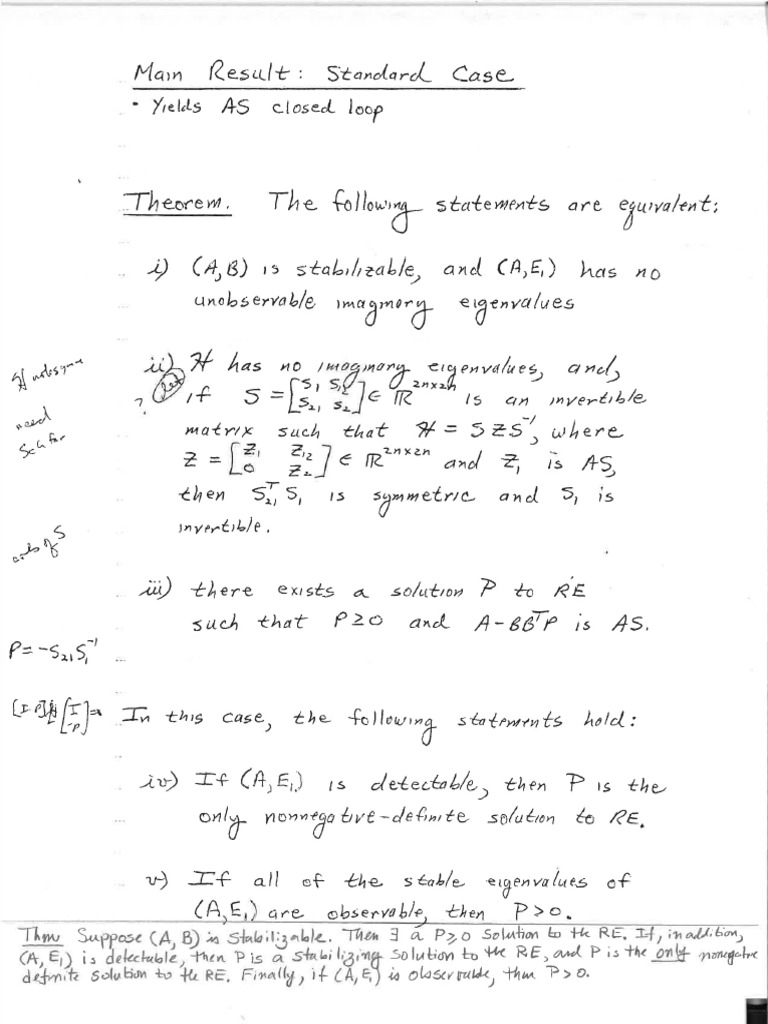 Main Result: Standard Case
• Yields AS closed loop
Theorem. The following statements are equivalent:
i) (A,B) is stabilizable, and (A,E₁) has no
unobservable imagmory eigenvalues
ii) ℋ has no imagmory eigenvalues, and,
if S = [S₁ S₁₂; S₂₁ S₂] ∈ ℝ²ⁿˣ²ⁿ is an invertible
matrix such that ℋ = SZS⁻¹, where
Z = [Z₁ Z₁₂; 0 Z₂] ∈ ℝ²ⁿˣ²ⁿ and Z₁ is AS,
then S₂₁ᵀS₁ is symmetric and S₁ is
invertible.
?
need
of S
iii) there exists a solution P to RE
such that P≥0 and A-BBᵀP is AS.
P = -S₂₁S₁⁻¹
In this case, the following statements hold:
iv) If (A,E₁) is detectable, then P is the
only nonnegative-definite solution to RE.
v) If all of the stable eigenvalues of
(A,E₁) are observable, then P>0.
Thm Suppose (A,B) is stabilizable. Then ∃ a P≥0 solution to the RE. If, in addition,
(A,E₁) is detectable, then P is a stabilizing solution to the RE, and P is the only nonnegative
definite solution to the RE. Finally, if (A,E₁) is observable, then P>0.